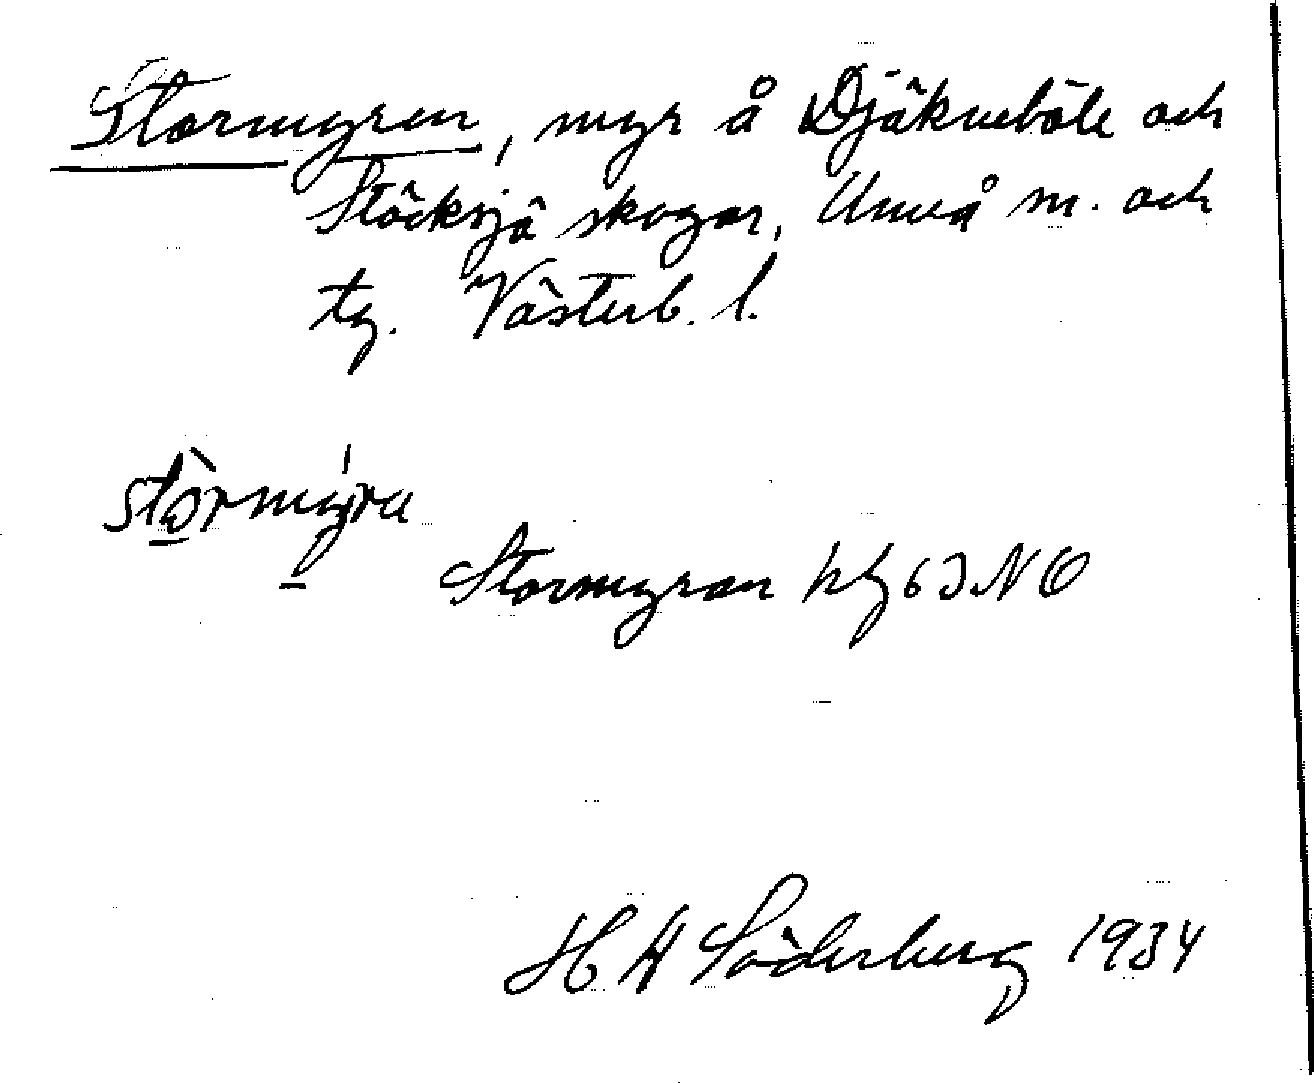 Stormyren, myr å Djäkneböle och
Stöcksjö skogar, Umeå sn. och
tg. Västerb. l.
stòrmýra
Stormyran hg 63 NO
H A Söderberg 1934